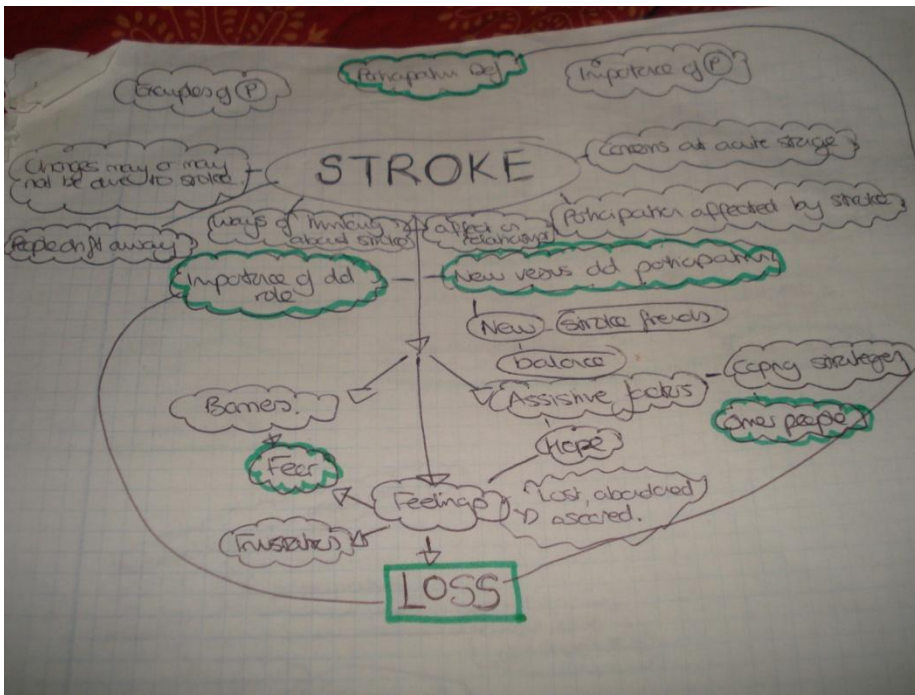 Participation Def
Examples of P
Importance of P
STROKE
Concerns at acute stage
Changes may or may
not be due to stroke
People drift away
Ways of thinking
about stroke
affect on
relationships
Participation affected by stroke
Importance of old
role
New versus old participation
New
Stroke friends
balance
Barriers.
Assistive factors
Coping strategies
Other people
Fear
Hope
Feelings
Lost, abandoned
scared.
Frustration
LOSS